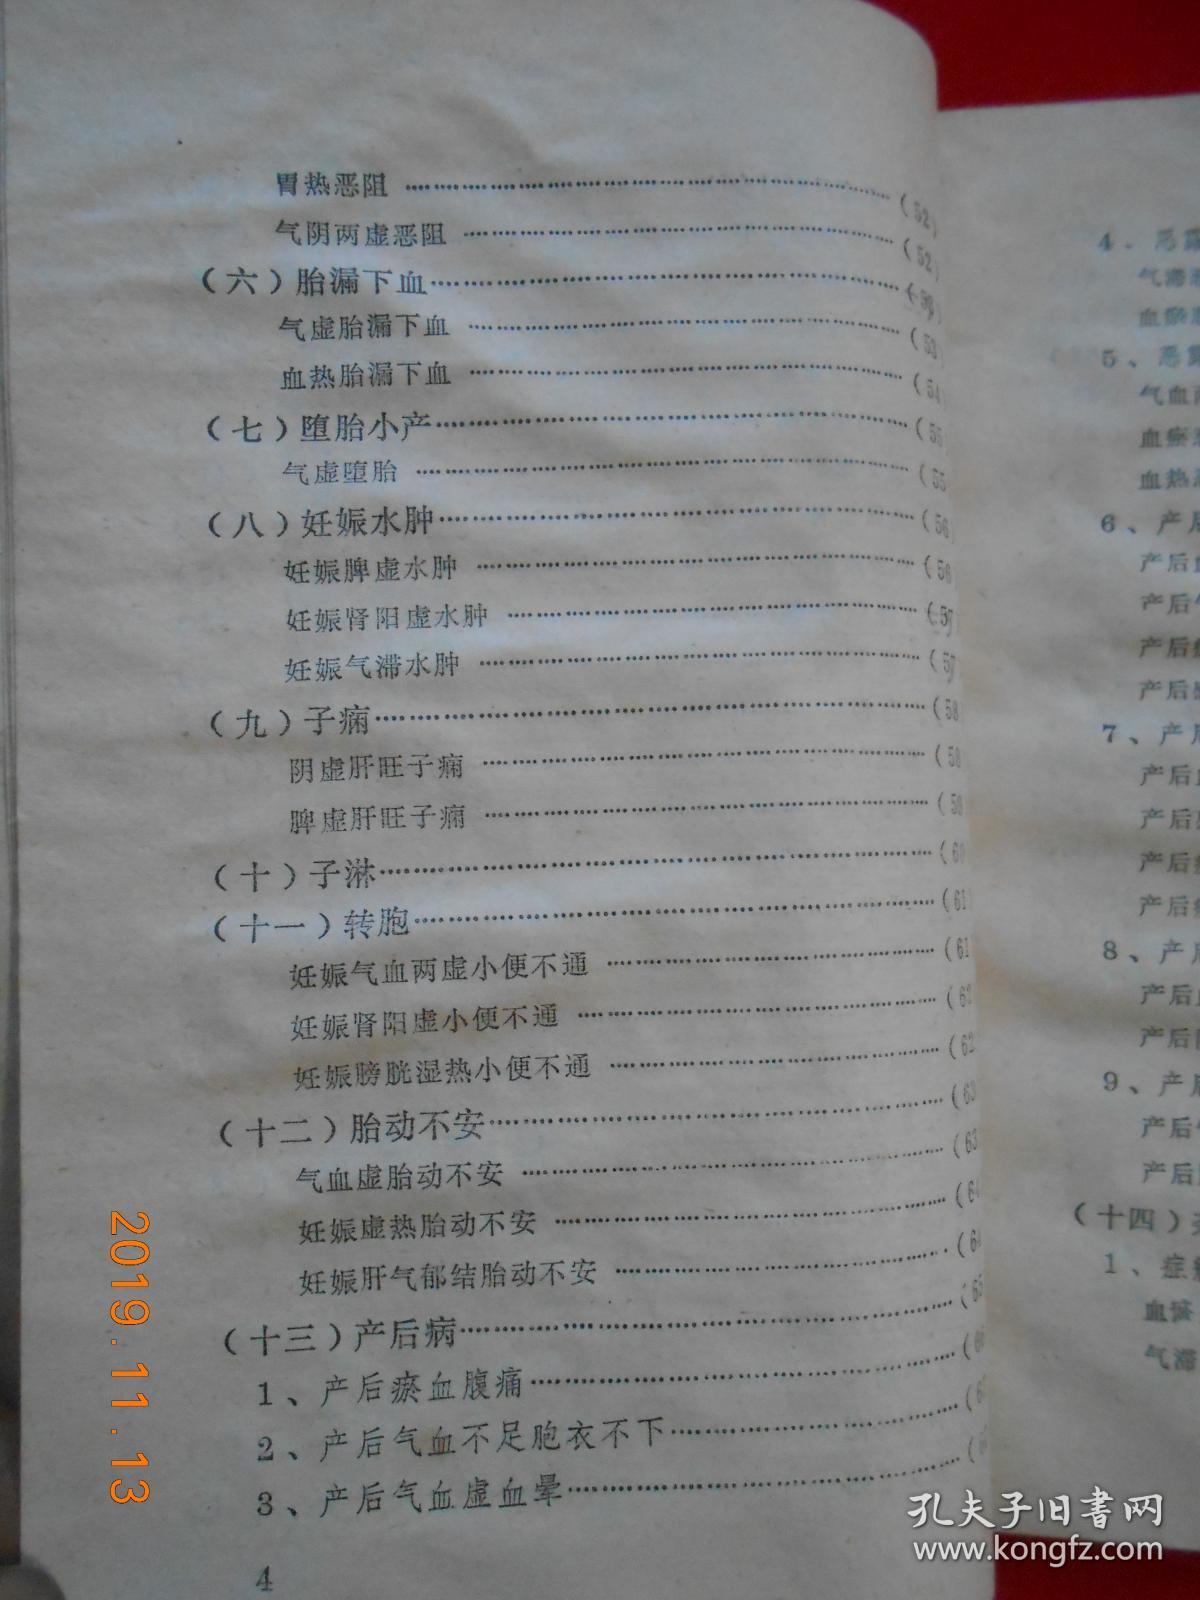 胃热恶阻 ………(52)
气阴两虚恶阻 ………(52)
(六)胎漏下血………(53)
气虚胎漏下血 ………(53)
血热胎漏下血 ………(54)
(七)堕胎小产………(55
气虚堕胎 ………(55
(八)妊娠水肿………(56)
妊娠脾虚水肿 ………(56
妊娠肾阳虚水肿 ………(57
妊娠气滞水肿 ………(57
(九)子痫………(58
阴虚肝旺子痫 ………(58
脾虚肝旺子痫 ………(59
(十)子淋………(60
(十一)转胞………(61
妊娠气血两虚小便不通 ………(61
妊娠肾阳虚小便不通 ………(62
妊娠膀胱湿热小便不通 ………(62
(十二)胎动不安………(63
气血虚胎动不安 ………(63
妊娠虚热胎动不安 ………(64
妊娠肝气郁结胎动不安 ………(64
(十三)产后病………(65
1、产后瘀血腹痛………(6
2、产后气血不足胞衣不下………(6
3、产后气血虚血晕………(6
4
4、恶露
气滞
血瘀
5、恶露
气血
血瘀
血热
6、产后
产后
产后
产后
产后
7、产后
产后
产后
产后
产后
8、产后
产后
产后
9、产后
产后
产后
(十四)
1、症
血瘀
气滞
2019.11.13
孔夫子旧书网
www.kongfz.com